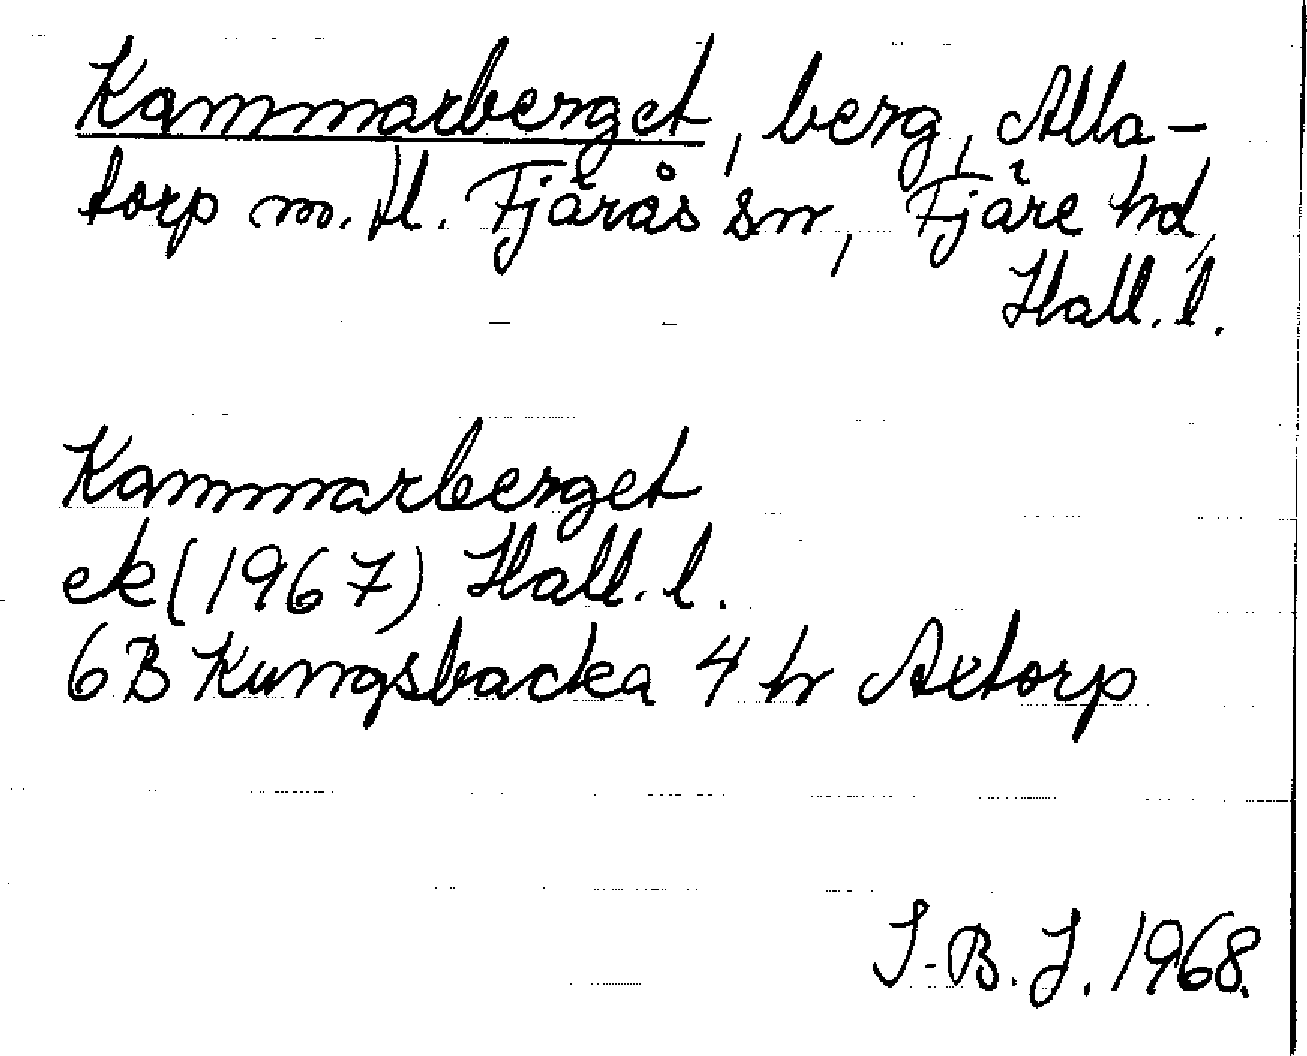 Kammarberget, berg, Alla-
torp m. fl. Fjärås sn, Fjäre hd,
Hall. l.
Kammarberget
ek (1967) Hall. l.
6B Kungsbacka 4 h Axtorp
I-B. J. 1968.